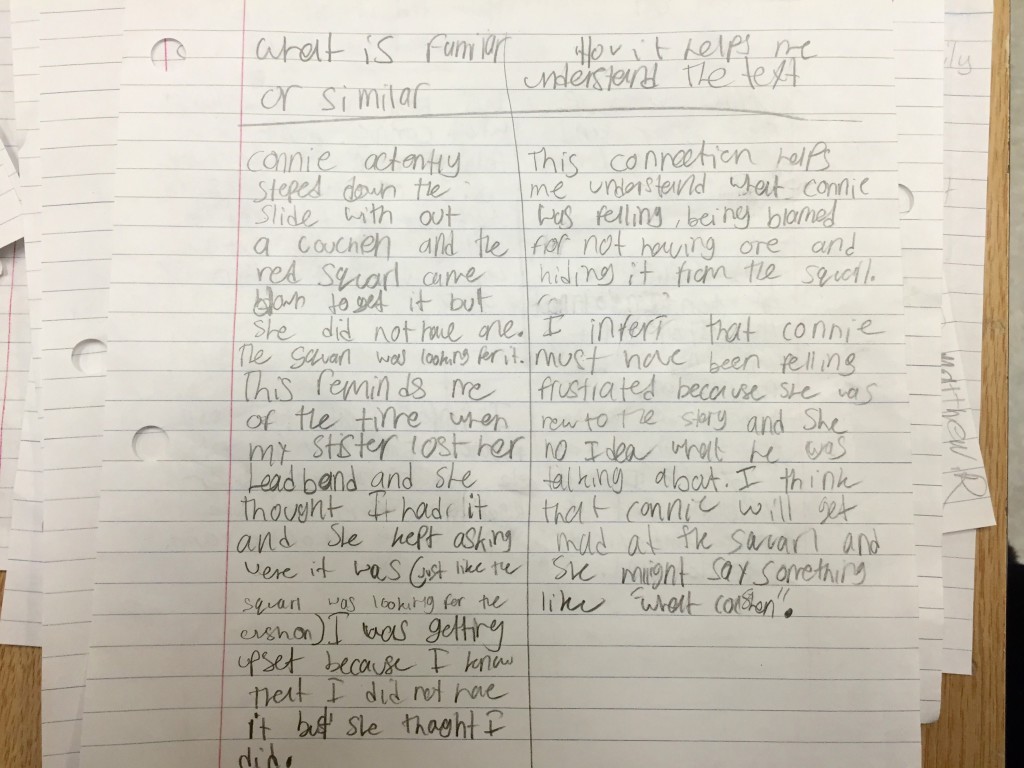 What is Familar
or similar
How it helps me
understand the text
connie actently
steped down the
slide with out
a couchen and the
red squarl came
down to get it but
she did not have one.
The squarl was looking for it.
This reminds me
of the time when
my stister lost her
head band and she
thought I had it
and she kept asking
were it was (just like the
squarl was looking for the
cushon) I was getting
upset because I know
that I did not have
it but she thaght I
did.
This connection helps
me understand what connie
was felling, being blamed
for not having one and
hiding it from the squarl.
I inferr that connie
must have been felling
frustrated because she was
new to the story and she
no Idea what he was
talking about. I think
that connie will get
mad at the squarl and
she might say something
like "what coushen".
ily
Matthew R